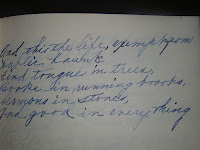 And this the life, exempt from
public haunts
find tongues in trees,
books in running brooks,
sermons in stones,
and good in every thing